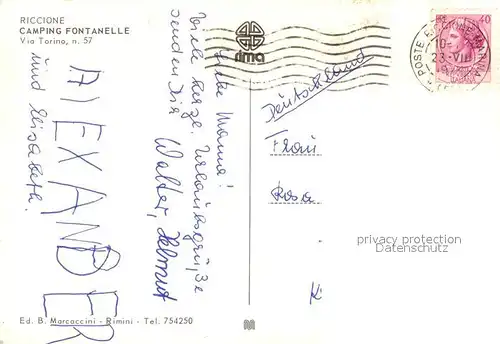 RICCIONE
CAMPING FONTANELLE
Via Torino, n. 57
rima
POSTE
10-
23-VIII
40
Liebe Mama!
Viele herzl. Urlaubsgrüße
senden Dir Walter, Helmut
und Elisabeth.
ALEXANDER
Deutschland
Frau
Rosa
K
privacy protection
Datenschutz
Ed. B. Marcaccini - Rimini - Tel. 754250